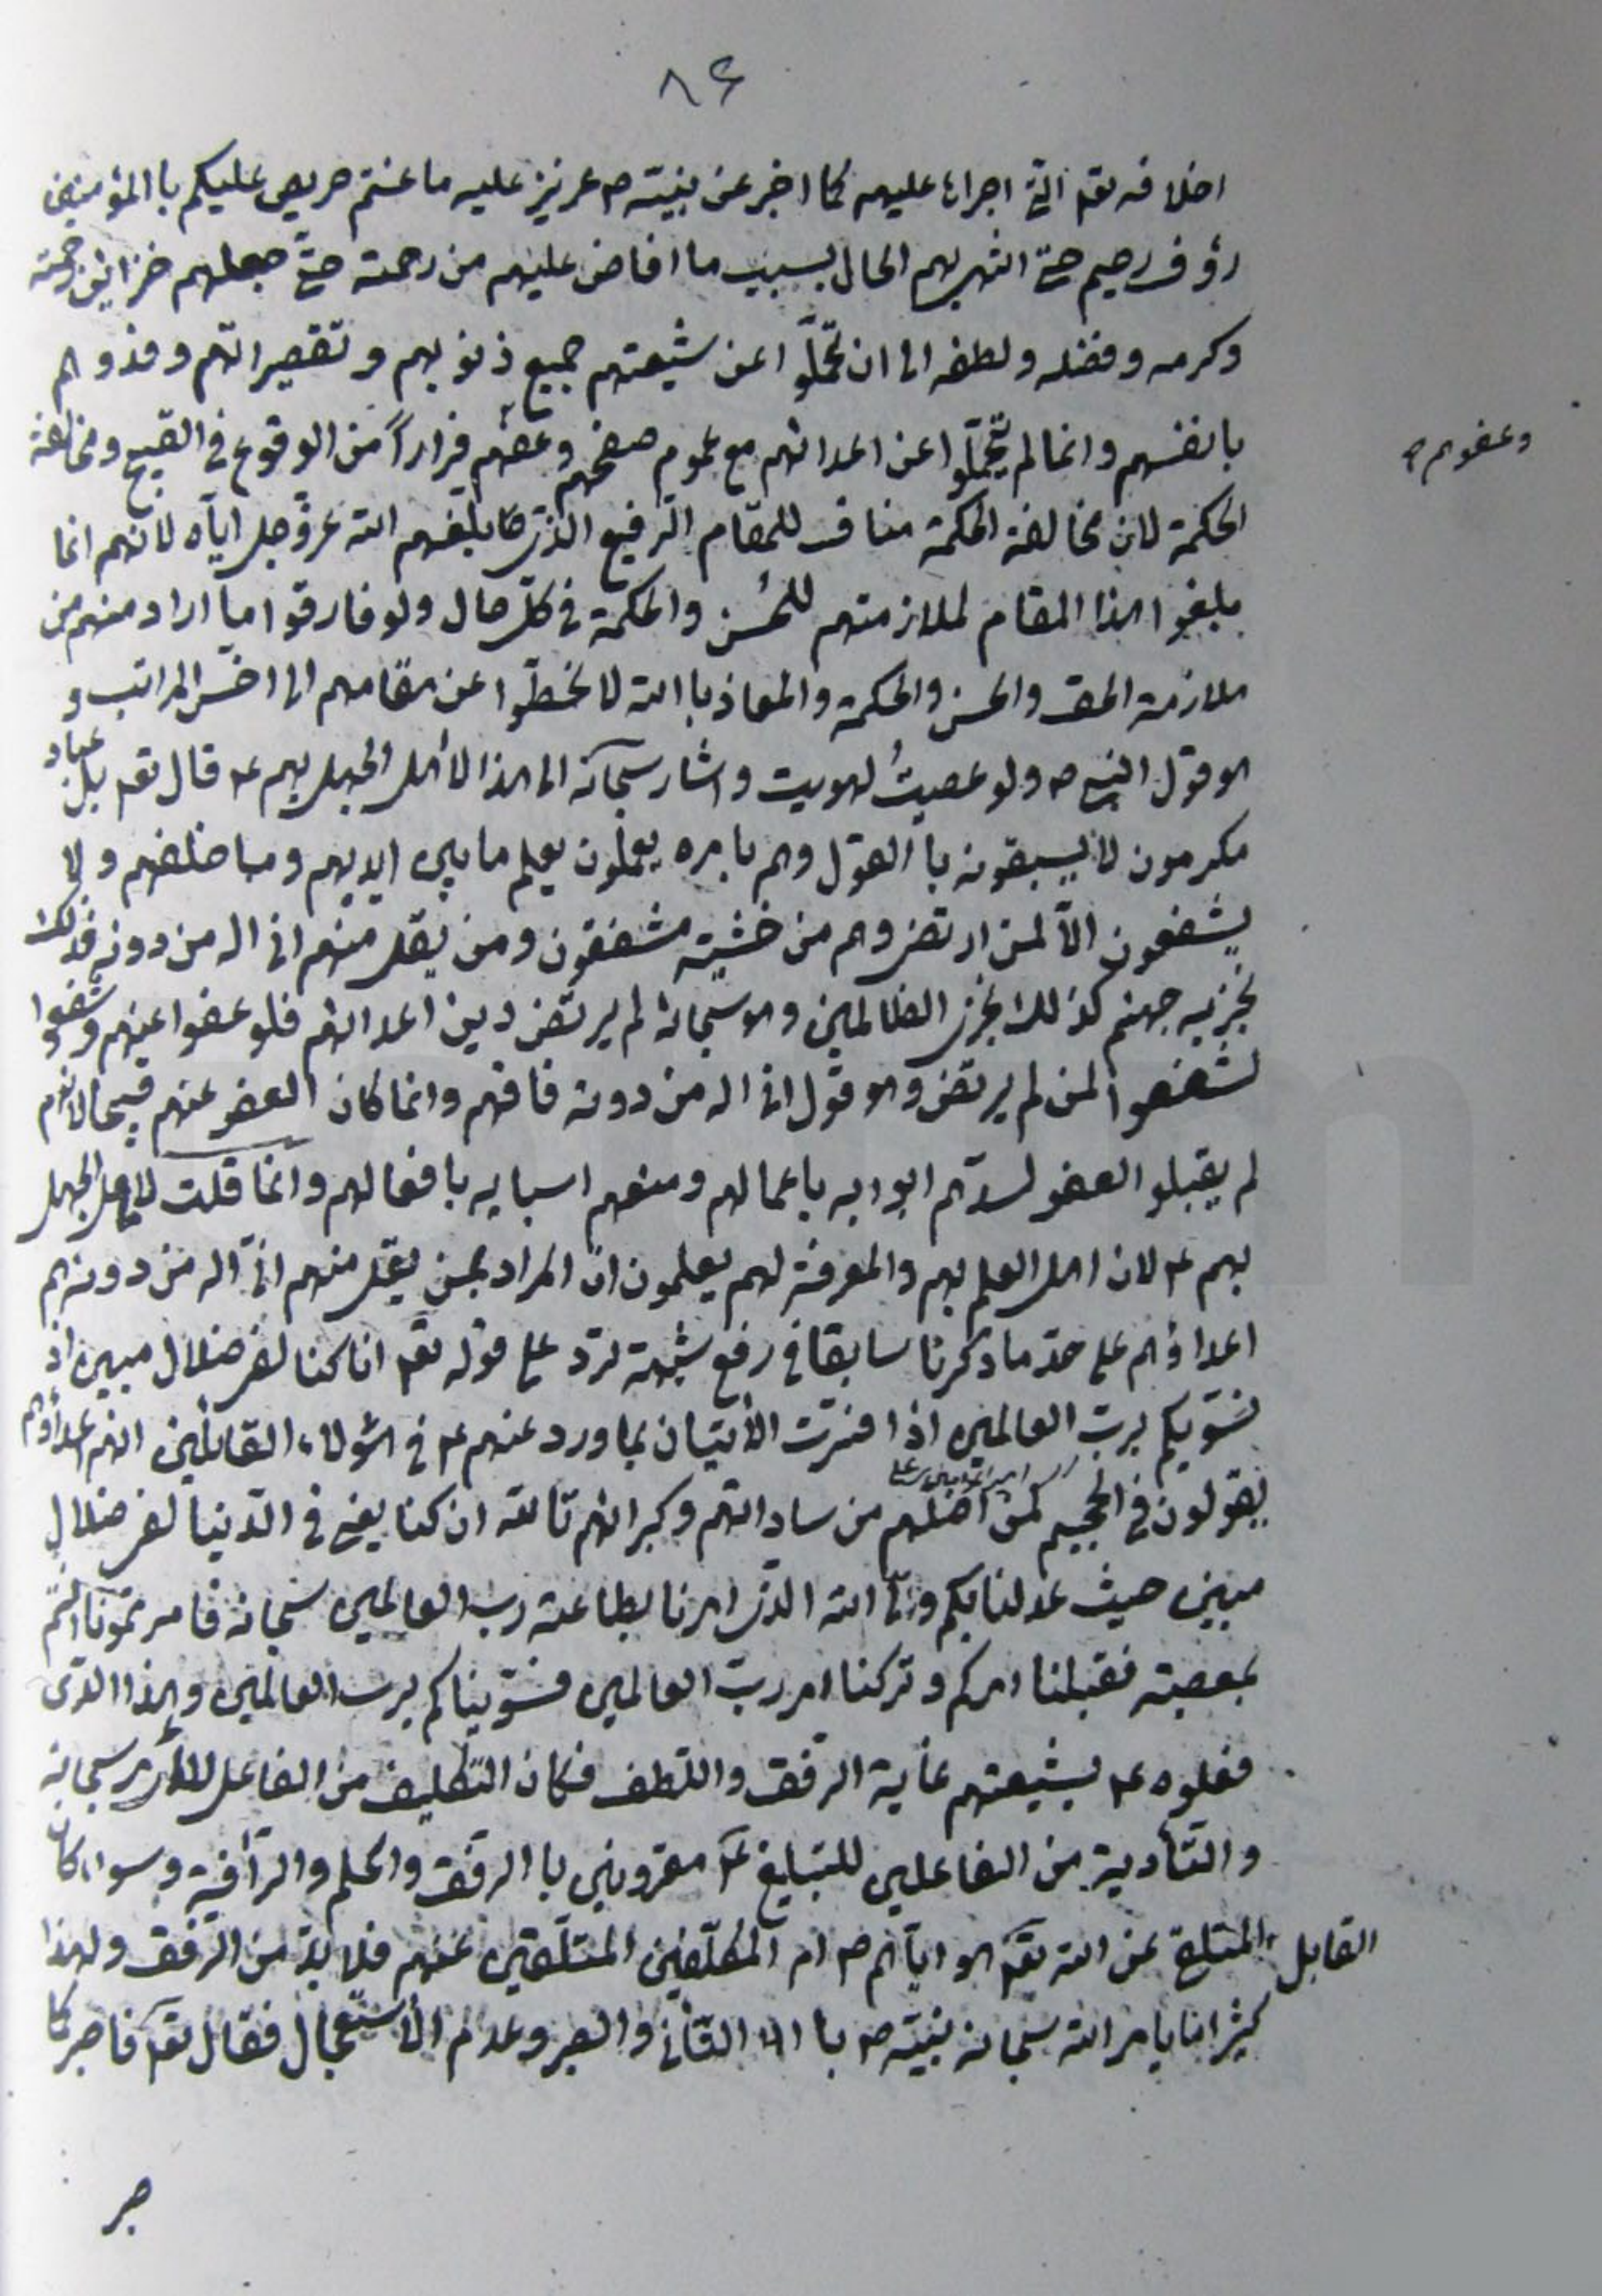 ٨۶
اخلاقه تقه التي اجراها عليهم كما اخبر عن نبيّه ص عزيز عليه ما عنتم حريص عليكم باالمؤمنين
رؤف رحيم حتى انتهى بهم الحال بسبب ما افاض عليهم من رحمته حتى جعلهم خزاين رحمته
وكرمه وفضله ولطفه الى ان تحمّلوا عن شيعتهم جميع ذنوبهم وتقصيراتهم وفدوهم
بانفسهم وانما لم يتحمّلوا عن اعدائهم مع عموم صفحهم وعفوهم فراراً من الوقوع في القبيح ومخالفة
وعفوهم ص
الحكمة لان مخالفة الحكمة مناف للمقام الرفيع الذي ما بلغهم الله عزوجل اياه لانهم انما
بلغوا هذا المقام لملازمتهم للحُسن والحكمة في كل حال ولو فارقوا ما اراد منهم من
ملازمة الحق والحسن والحكمة والمعاذ باالله لانحطّوا عن مقامهم الى اخسّ المراتب و
هو قول النبي ص ولو عصيتُ لهويت واشار سبحانه الى هذا لأهل الجهل بهم ع قال تقه بل عباد
مكرمون لا يسبقونه باالقول وهم بامره يعملون يعلم ما بين ايديهم وما خلفهم ولا
يشفعون الّا لمن ارتضى وهم من خشيته مشفقون ومن يقل منهم اني اله من دونه فذلك
نجزيه جهنم كذلك نجزى الظالمين وهو سبحانه لم يرتض دين اعدائهم فلو عفوا عنهم وشفعوا
لشفعوا لمن لم يرتض وهو قول اني اله من دونه فافهم وانما كان العفو عنهم قبيحا لانهم
لم يقبلو العفو لسدّهم ابوابه باعمالهم ومنعهم اسبابه بافعالهم وانما قلت لاهل الجهل
بهم ع لان اهل العلم بهم والمعرفة لهم يعلمون ان المراد بمن يقل منهم اني اله من دونه هم
اعداؤهم على حدّ ما ذكرنا سابقا في رفع شبهة ترد على قوله تقه انا كنا لفى ضلال مبين اذ
نسوّيكم بربّ العالمين اذا فسّرت الأيتان بما ورد عنهم ع في هؤلاء القائلين انهم اعداؤهم
يقولون في الجحيم لمن اضلهم من ساداتهم وكبرائهم تاالله ان كنا يعنى في الدّنيا لفى ضلال
مبين حيث عدلنا بكم ولىّ الله الذى امرنا بطاعته رب العالمين سبحانه فامرتمونا انتم
بمعصيته فقبلنا امركم وتركنا امر ربّ العالمين فسوّيناكم برب العالمين وهذا الذى
فعلوه ع بشيعتهم غاية الرفق واللطف فكان التكليف من الفاعل للأمر سبحانه
والتّأدية من الفاعلين للتبليغ ع مقرونين باالرفق والحلم والرأفة وسواء كان
القابل المتلقى عن الله تقه هو اياهم ص ام المكلّفين المتلقّين عنهم فلا بدّ من الرّفق ولهذا
كثيرا ما يامر الله سبحانه نبيّه ص با التّأني والصبر وعدم الأستعجال فقال تقه فاصبر كما
صبر